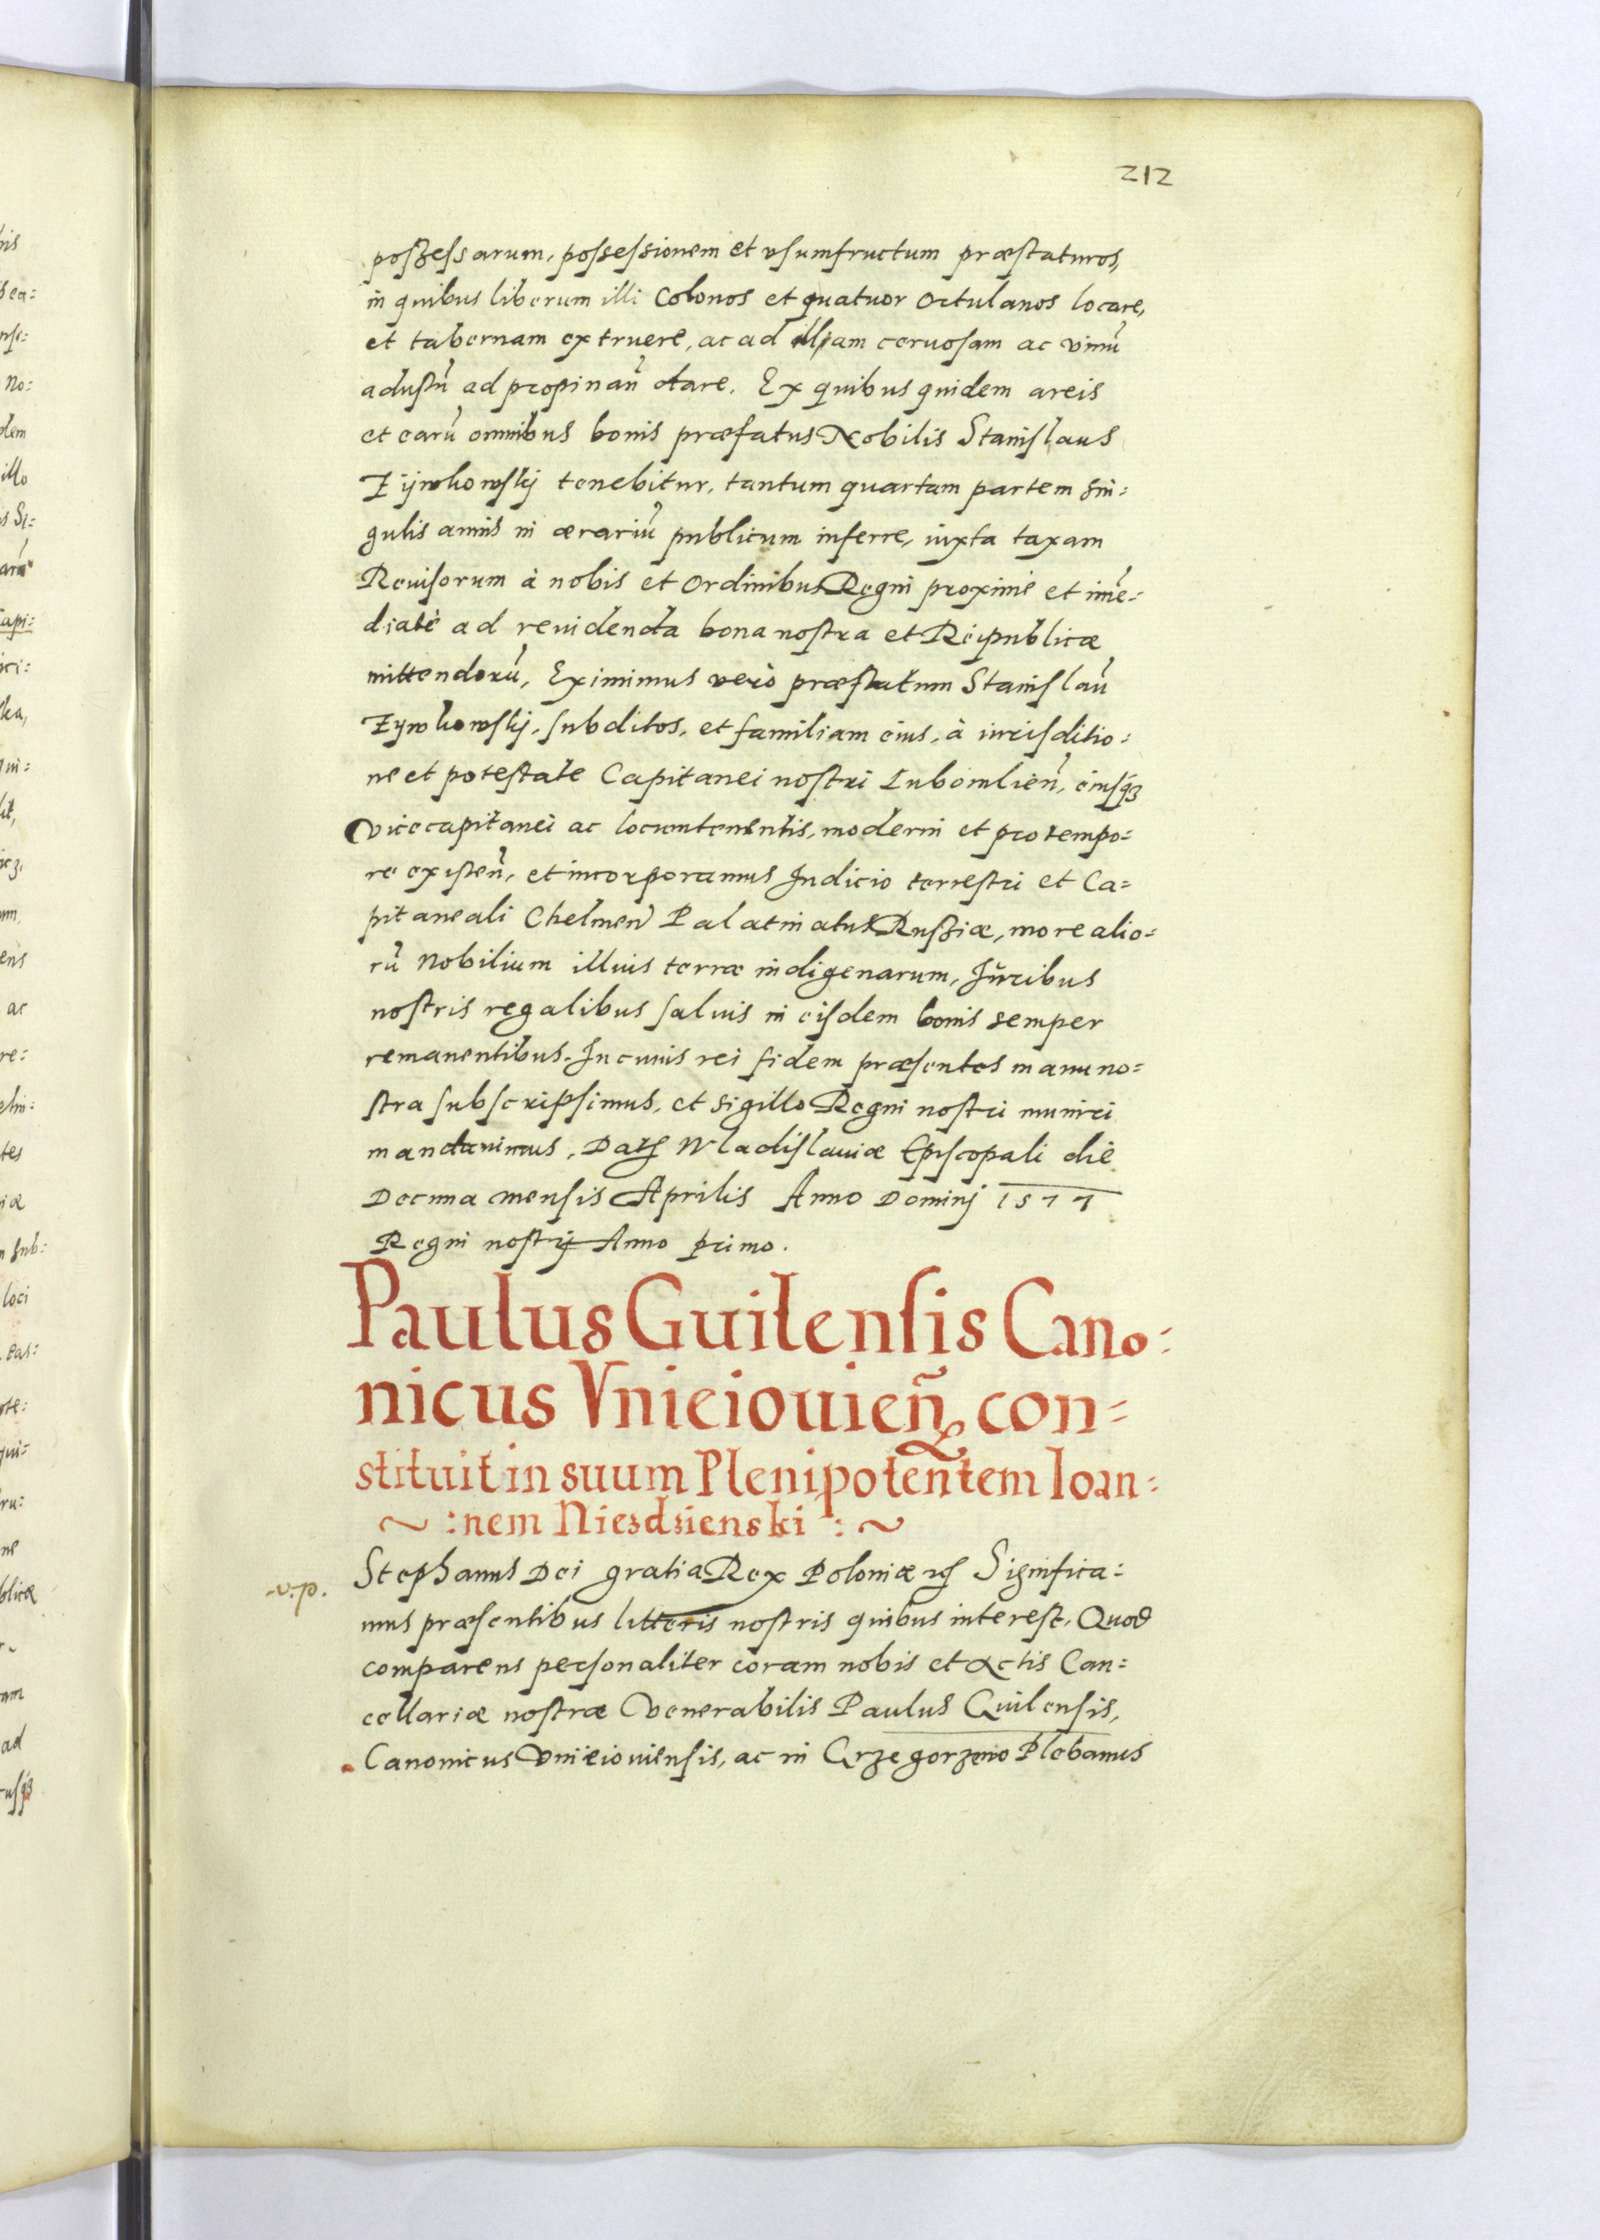 212
possessarum, possessionem et vsumfructum præstaturos,
in quibus liberum illi Colonos et quatuor ortulanos locare,
et tabernam extruere, ac ad illam ceruosam ac vinũ
adustũ ad propinanũ dare. Ex quibus quidem areis
et earũ omnibus bonis præfatus Nobilis Stanislaus
Zÿwkowskÿ tenebitur, tantum quartam partem sin=
gulis annis in ærariũ publicum inferre, iuxta taxam
Reuisorum à nobis et Ordinibus Regni proximè et imẽ=
diatè ad reuidenda bona nostra et Reipublicæ
mittendorũ, Eximimus verò præfatum Stanislaũ
Zywkowskÿ, subditos, et familiam eius, à iurisditio=
ne et potestate Capitanei nostri Lubomlieñ, eiusqꝫ
vicecapitanei ac locumtenentis, moderni et pro tempo=
re existeñ, et incorporamus Judicio terrestri et Ca=
pitaneali Chelmeñ Palatinatus Russiæ, more alio=
rũ Nobilium illius terræ indigenarum, Juribus
nostris regalibus saluis in eisdem bonis semper
remanentibus. In cuius rei fidem præsentes manu no=
stra subscripsimus, et sigillo Regni nostri muniri
mandauimus, Datꝭ Wladislauiæ Episcopali die
Decima mensis Aprilis Anno Dominj 1577
Regni nostrij Anno primo.
Paulus Guilensis Cano=
nicus Vnieiouieñ con=
stituit in suum Plenipotentem Ioan=
~ :nem Niesdzienski : ~
v.p. Stephanus Dei gratia Rex Poloniæ ꝛꝭ Significa=
mus præsentibus litteris nostris quibus interest, Quod
comparens personaliter coram nobis et Actis Can=
cellariæ nostræ Venerabilis Paulus Guilensis,
Canonicus Vnieiouiensis, ac in Grzegorzewo Plebanus